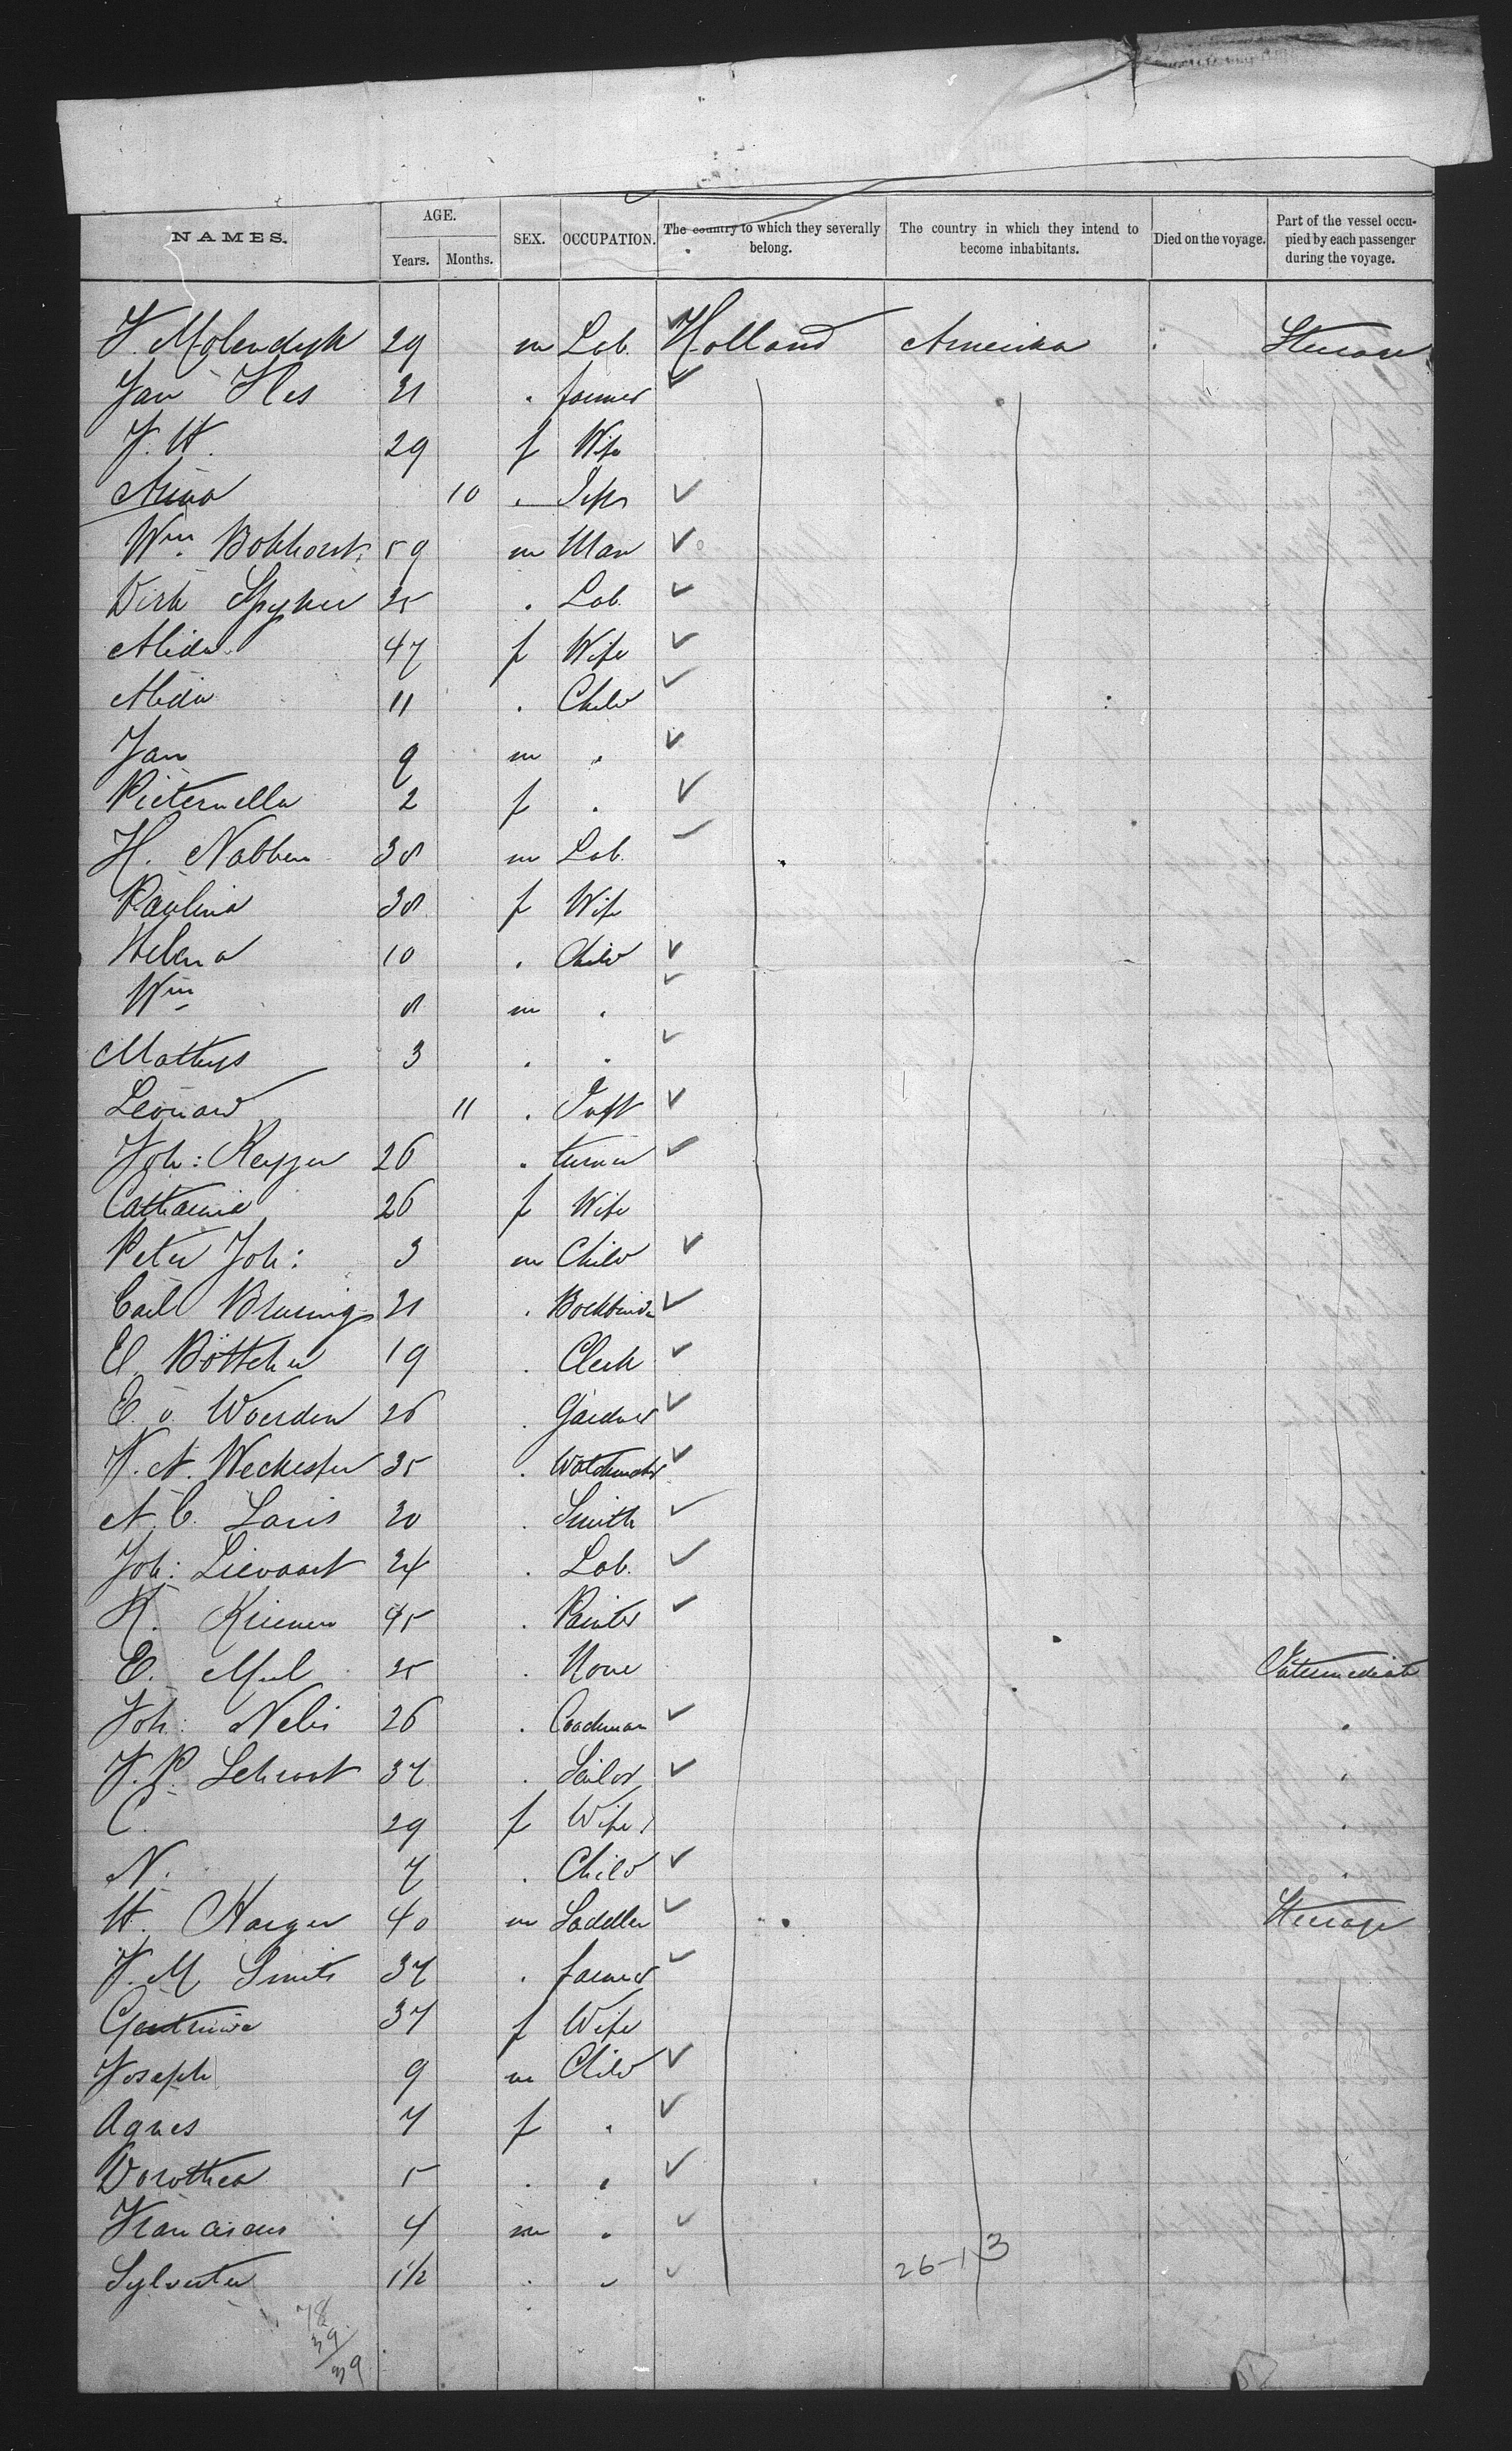 NAMES. AGE. Years. Months. SEX. OCCUPATION. The country to which they severally belong. The country in which they intend to become inhabitants. Died on the voyage. Part of the vessel occupied by each passenger during the voyage.
J. Molendyk 29 m Lab. Holland Amerika Steerage
Jan 31 . farmer
J. H. 29 f Wife
Anna 10 .
Wm Bokhorst 59 m Man
Dirk Spyker 35 . Lab.
Alida 47 f Wife
Alida 11 . Child
Jan 9 m .
Pieternella 2 f .
H. Nabben 38 m Lab.
Paulina 38 f Wife
Helena 10 . Child
Wm 8 m .
Mathys 3 . .
Leonard 11 . Inft
Joh: Keyzer 26 . turner
Catharina 26 f Wife
Peter Joh: 3 m Child
Carl Bruning 31 . Bookbinder
E. Böttcher 19 . Clerk
E. v. Woerden 26 . Gardner
J. A. 35 . Watchmaker
A. C. Laris 30 . Smith
Joh: Lievaart 34 . Lab.
K. 45 . Painter
E. Mul 25 . None Intermediate
Joh: Nelis 26 . Coachman .
J. P. Schroot 37 . Sailor .
C. 29 f Wife .
N. 7 . Child .
H. Harger 40 m Saddler Steerage
J. M. Smits 37 . farmer
37 f Wife
Joseph 9 m Child
Agnes 7 f .
Dorothea 5 . .
Franciscus 4 m .
Sylvester 1½ . .
26-13
78
39
39